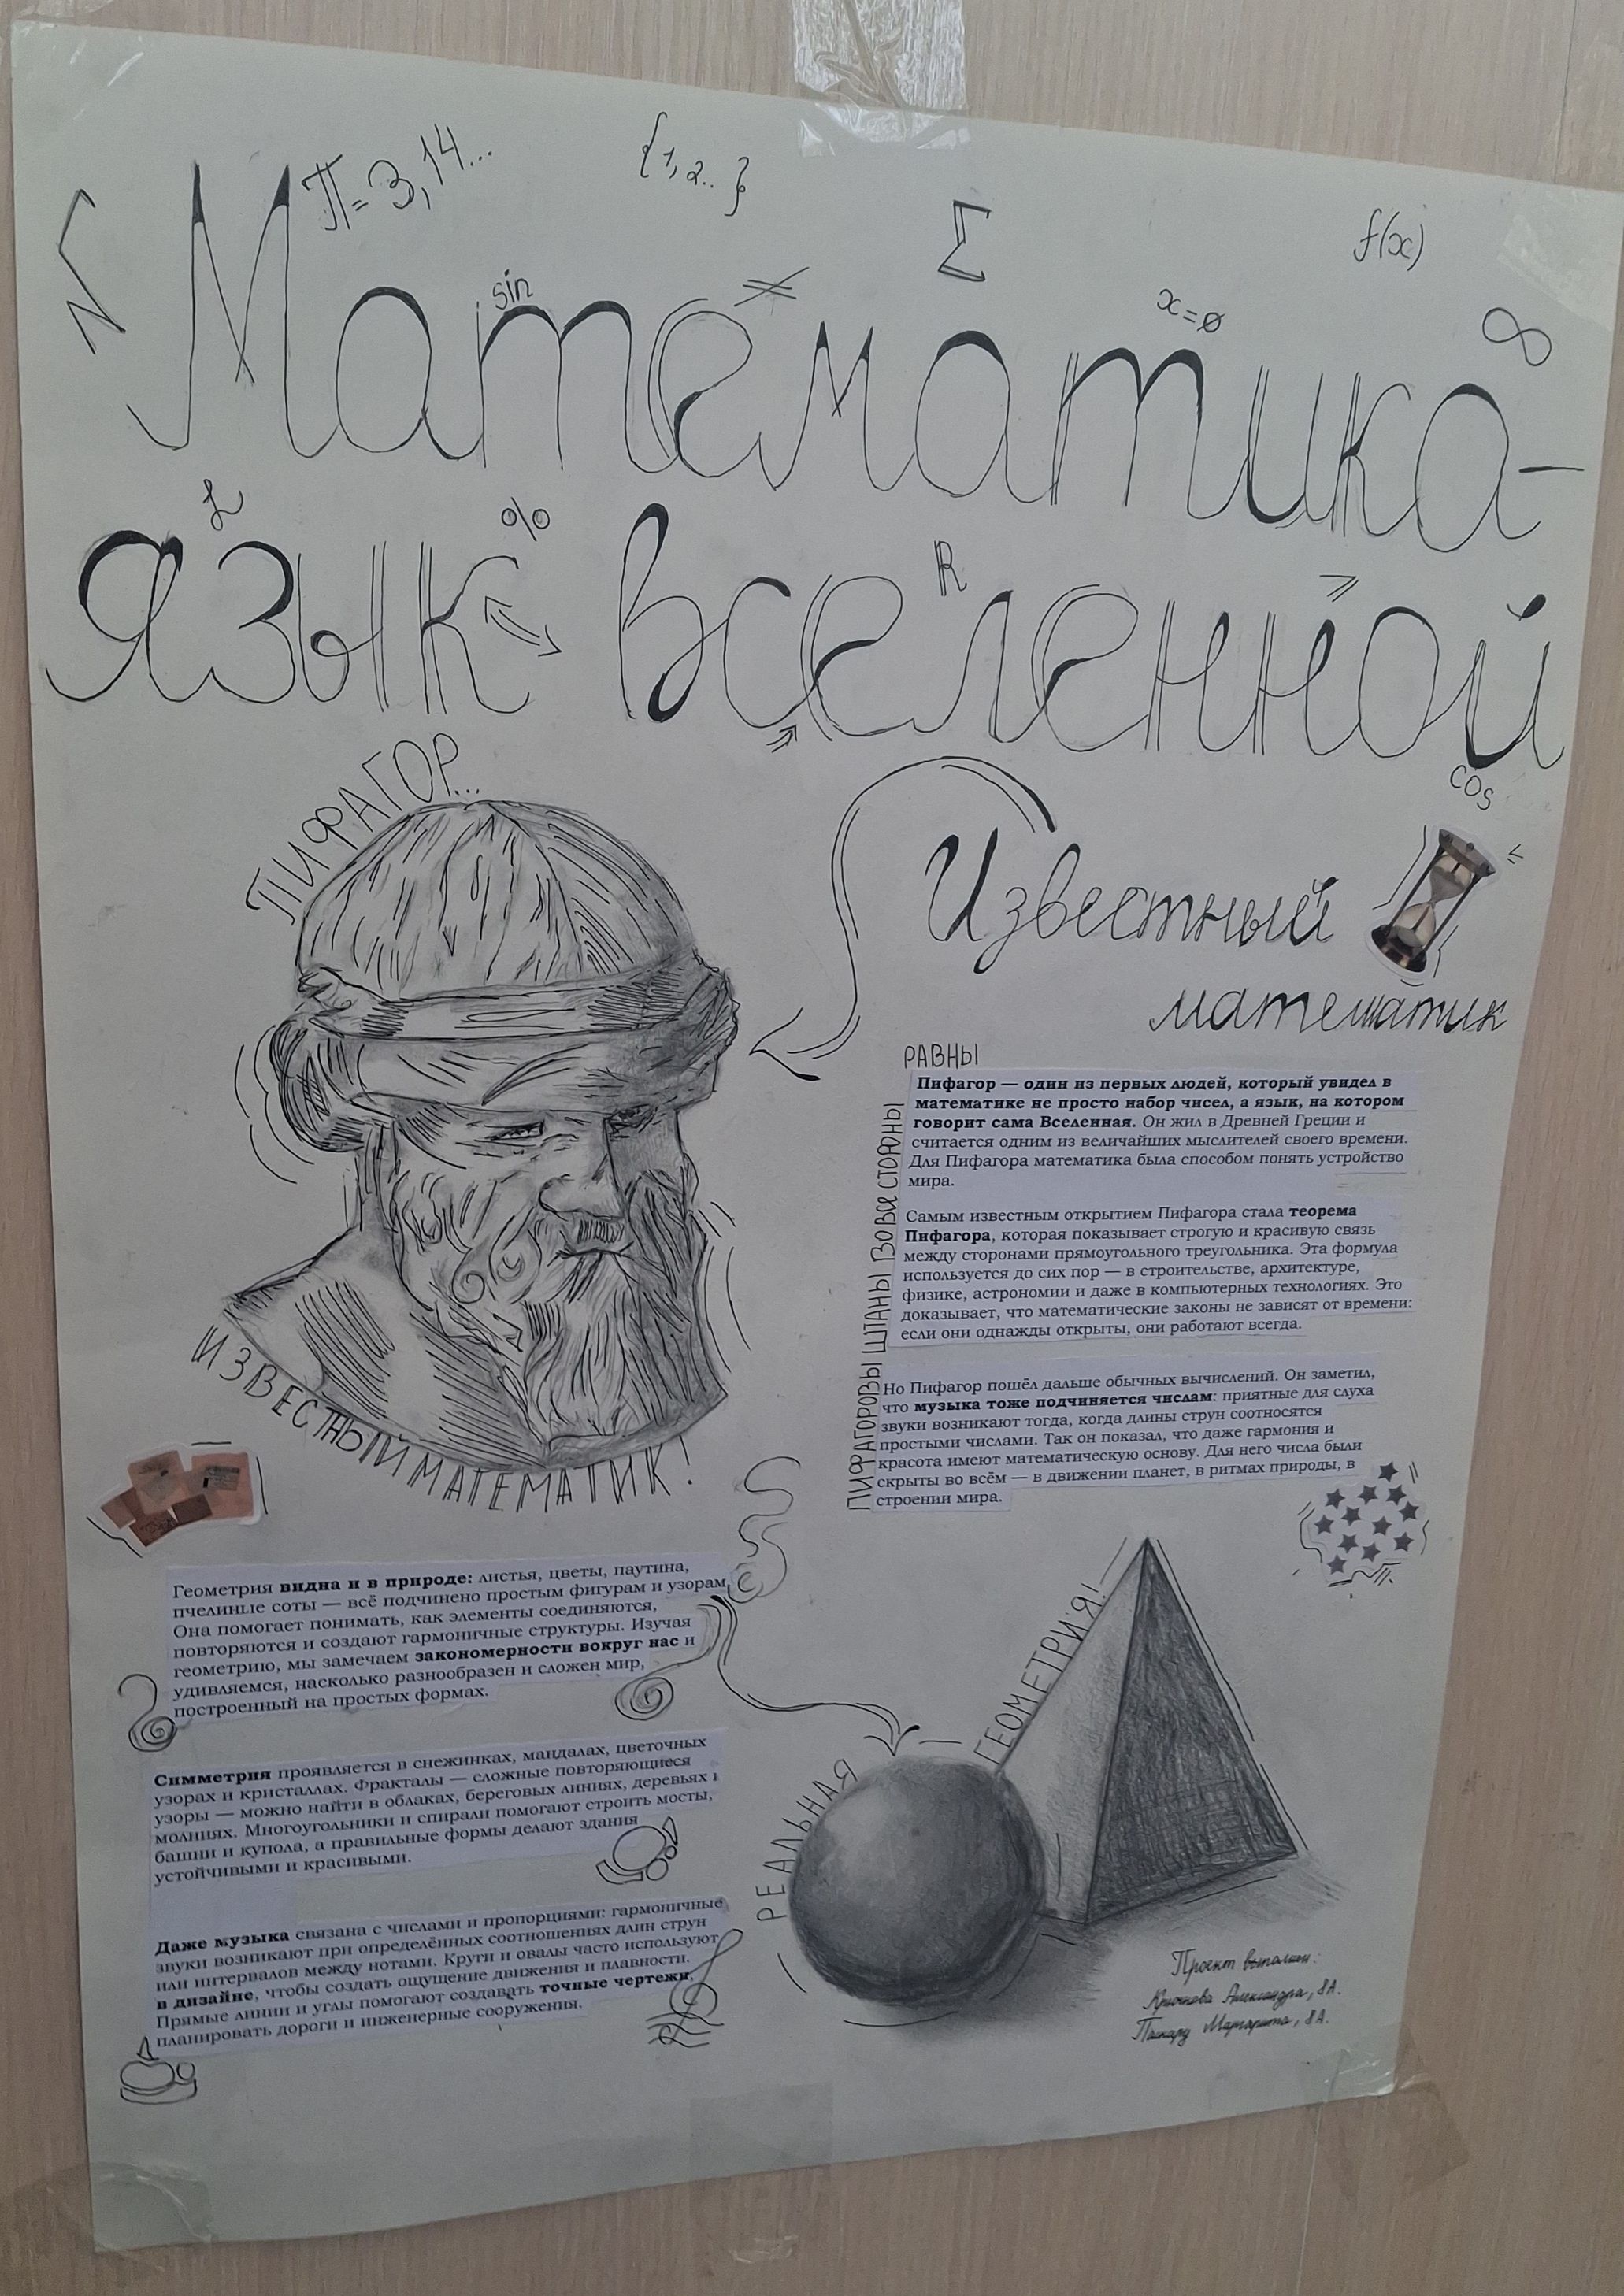 П=3,14...
{1,2..}
Σ
f(x)
sin
≠
x=0
∞
Математика-
%
R
язык вселенной
cos
ПИФАГОР...
ИЗВЕСТНЫЙ МАТЕМАТИК!
Известный
математик
ПИФАГОРОВЫ ШТАНЫ ВО ВСЕ СТОРОНЫ
РАВНЫ
Пифагор — один из первых людей, который увидел в
математике не просто набор чисел, а язык, на котором
говорит сама Вселенная. Он жил в Древней Греции и
считается одним из величайших мыслителей своего времени.
Для Пифагора математика была способом понять устройство
мира.
Самым известным открытием Пифагора стала теорема
Пифагора, которая показывает строгую и красивую связь
между сторонами прямоугольного треугольника. Эта формула
используется до сих пор — в строительстве, архитектуре,
физике, астрономии и даже в компьютерных технологиях. Это
доказывает, что математические законы не зависят от времени:
если они однажды открыты, они работают всегда.
Но Пифагор пошёл дальше обычных вычислений. Он заметил,
что музыка тоже подчиняется числам: приятные для слуха
звуки возникают тогда, когда длины струн соотносятся
простыми числами. Так он показал, что даже гармония и
красота имеют математическую основу. Для него числа были
скрыты во всём — в движении планет, в ритмах природы, в
строении мира.
Геометрия видна и в природе: листья, цветы, паутина,
пчелиные соты — всё подчинено простым фигурам и узорам.
Она помогает понимать, как элементы соединяются,
повторяются и создают гармоничные структуры. Изучая
геометрию, мы замечаем закономерности вокруг нас и
удивляемся, насколько разнообразен и сложен мир,
построенный на простых формах.
Симметрия проявляется в снежинках, мандалах, цветочных
узорах и кристаллах. Фракталы — сложные повторяющиеся
узоры — можно найти в облаках, береговых линиях, деревьях и
молниях. Многоугольники и спирали помогают строить мосты,
башни и купола, а правильные формы делают здания
устойчивыми и красивыми.
Даже музыка связана с числами и пропорциями: гармоничные
звуки возникают при определённых соотношениях длин струн
или интервалов между нотами. Круги и овалы часто используют
в дизайне, чтобы создать ощущение движения и плавности.
Прямые линии и углы помогают создавать точные чертежи,
планировать дороги и инженерные сооружения.
РЕАЛЬНАЯ
ГЕОМЕТРИЯ!
Проект
Александра, 8А.
Маргарита, 8А.